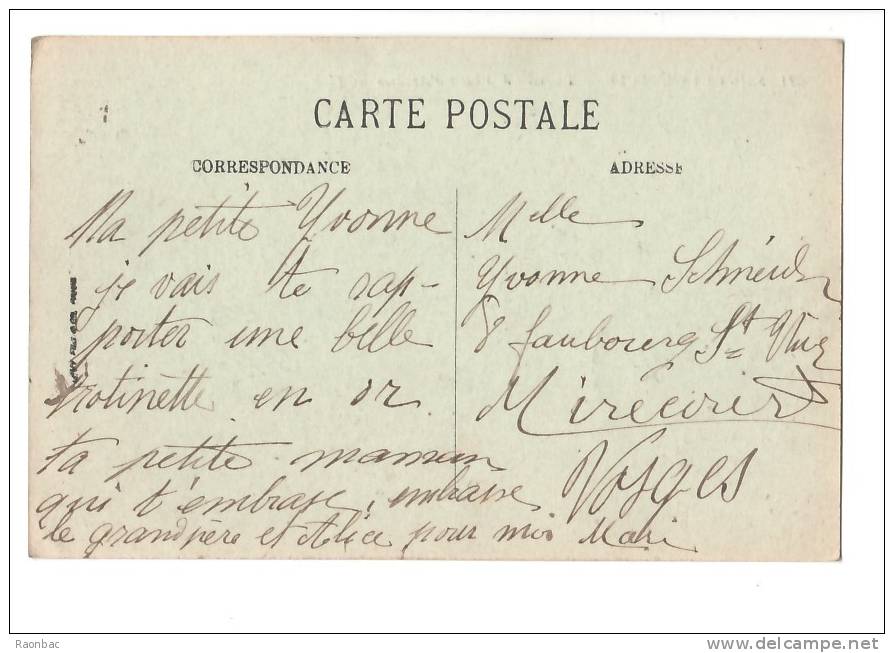 CARTE POSTALE
CORRESPONDANCE
ADRESSE
Ma petite Yvonne
je vais te rap-
porter une belle
trotinette en or
ta petite maman
qui t'embrase, embrasse
le grandpère et Alice pour moi
Melle
Yvonne
8 faubourg St
Mirecourt
Vosges
Raonbac
www.delcampe.net